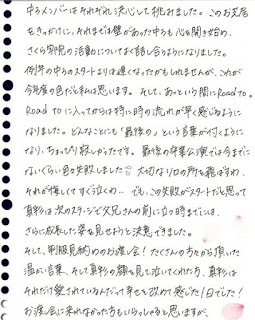 中3メンバーはそれぞれ決心して挑みました。このお芝居
をきっかけに、それまでは壁があった中3も心を開き始め、
さくら学院の活動についてよく話し合うようになりました。
例年の中3のスタートよりは遅くなったかもしれませんが、これが
今年度の色だと私は思います。そして、あっという間にRoad to。
Road toに入ってからは特に時の流れが早く感じるように
なりました。どんなことにも「最後の」という言葉が付くように
なり、ちょっぴり寂しかったです。最後の卒業公演では今までに
ないくらい色々失敗しました 大切なソロの所を飛ばすわ…
それが悔しくてすっごく泣くわ… でも、この失敗がスタートだと思って
真彩は次のステージで父兄さんの前に立つ時までには、
さらに成長した姿を見せようと決意できました。
そして、制服見納めのお渡し会!たくさんの方々から頂いた
温かい言葉、そして真彩の顔を見て泣いてくれた方、真彩は
それだけ愛されているんだって幸せを改めて感じた1日でした!
お渡し会に来れなかった方もいらっしゃると思いますが、